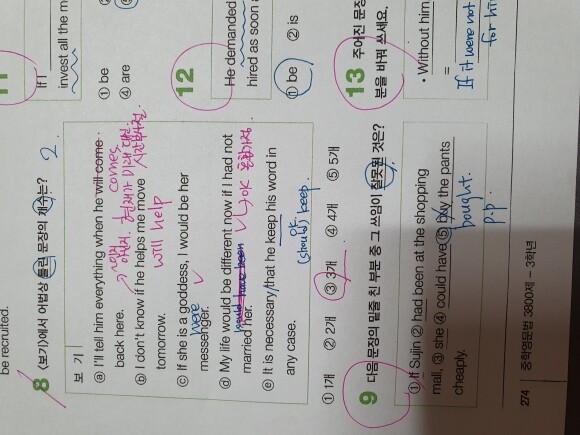 be recruited.
8 <보기>에서 어법상 틀린 문장의 개수는? 2.
보 기
ⓐ I'll tell him everything when he will come
comes
back here.
시간부사절.
ⓑ I don't know if he helps me move
tomorrow. will help
ⓒ If she is a goddess, I would be her
were
messenger.
ⓓ My life would be different now if I had not
married her. OK 혼합가정.
ⓔ It is necessary that he keep his word in
any case. (should) keep. OK.
① 1개 ② 2개 ③ 3개 ④ 4개 ⑤ 5개
9 다음 문장의 밑줄 친 부분 중 그 쓰임이 잘못된 것은?
① If Sujin ② had been at the shopping
mall, ③ she ④ could have ⑤ buy the pants
bought.
cheaply. p.p
274 중학영문법 3800제 – 3학년
11
If I
invest all the m
① be
④ are
12
He demanded
hired as soon a
① be ② is
13 주어진 문장
분을 바꿔 쓰세요.
• Without him
= If it were not
for hi